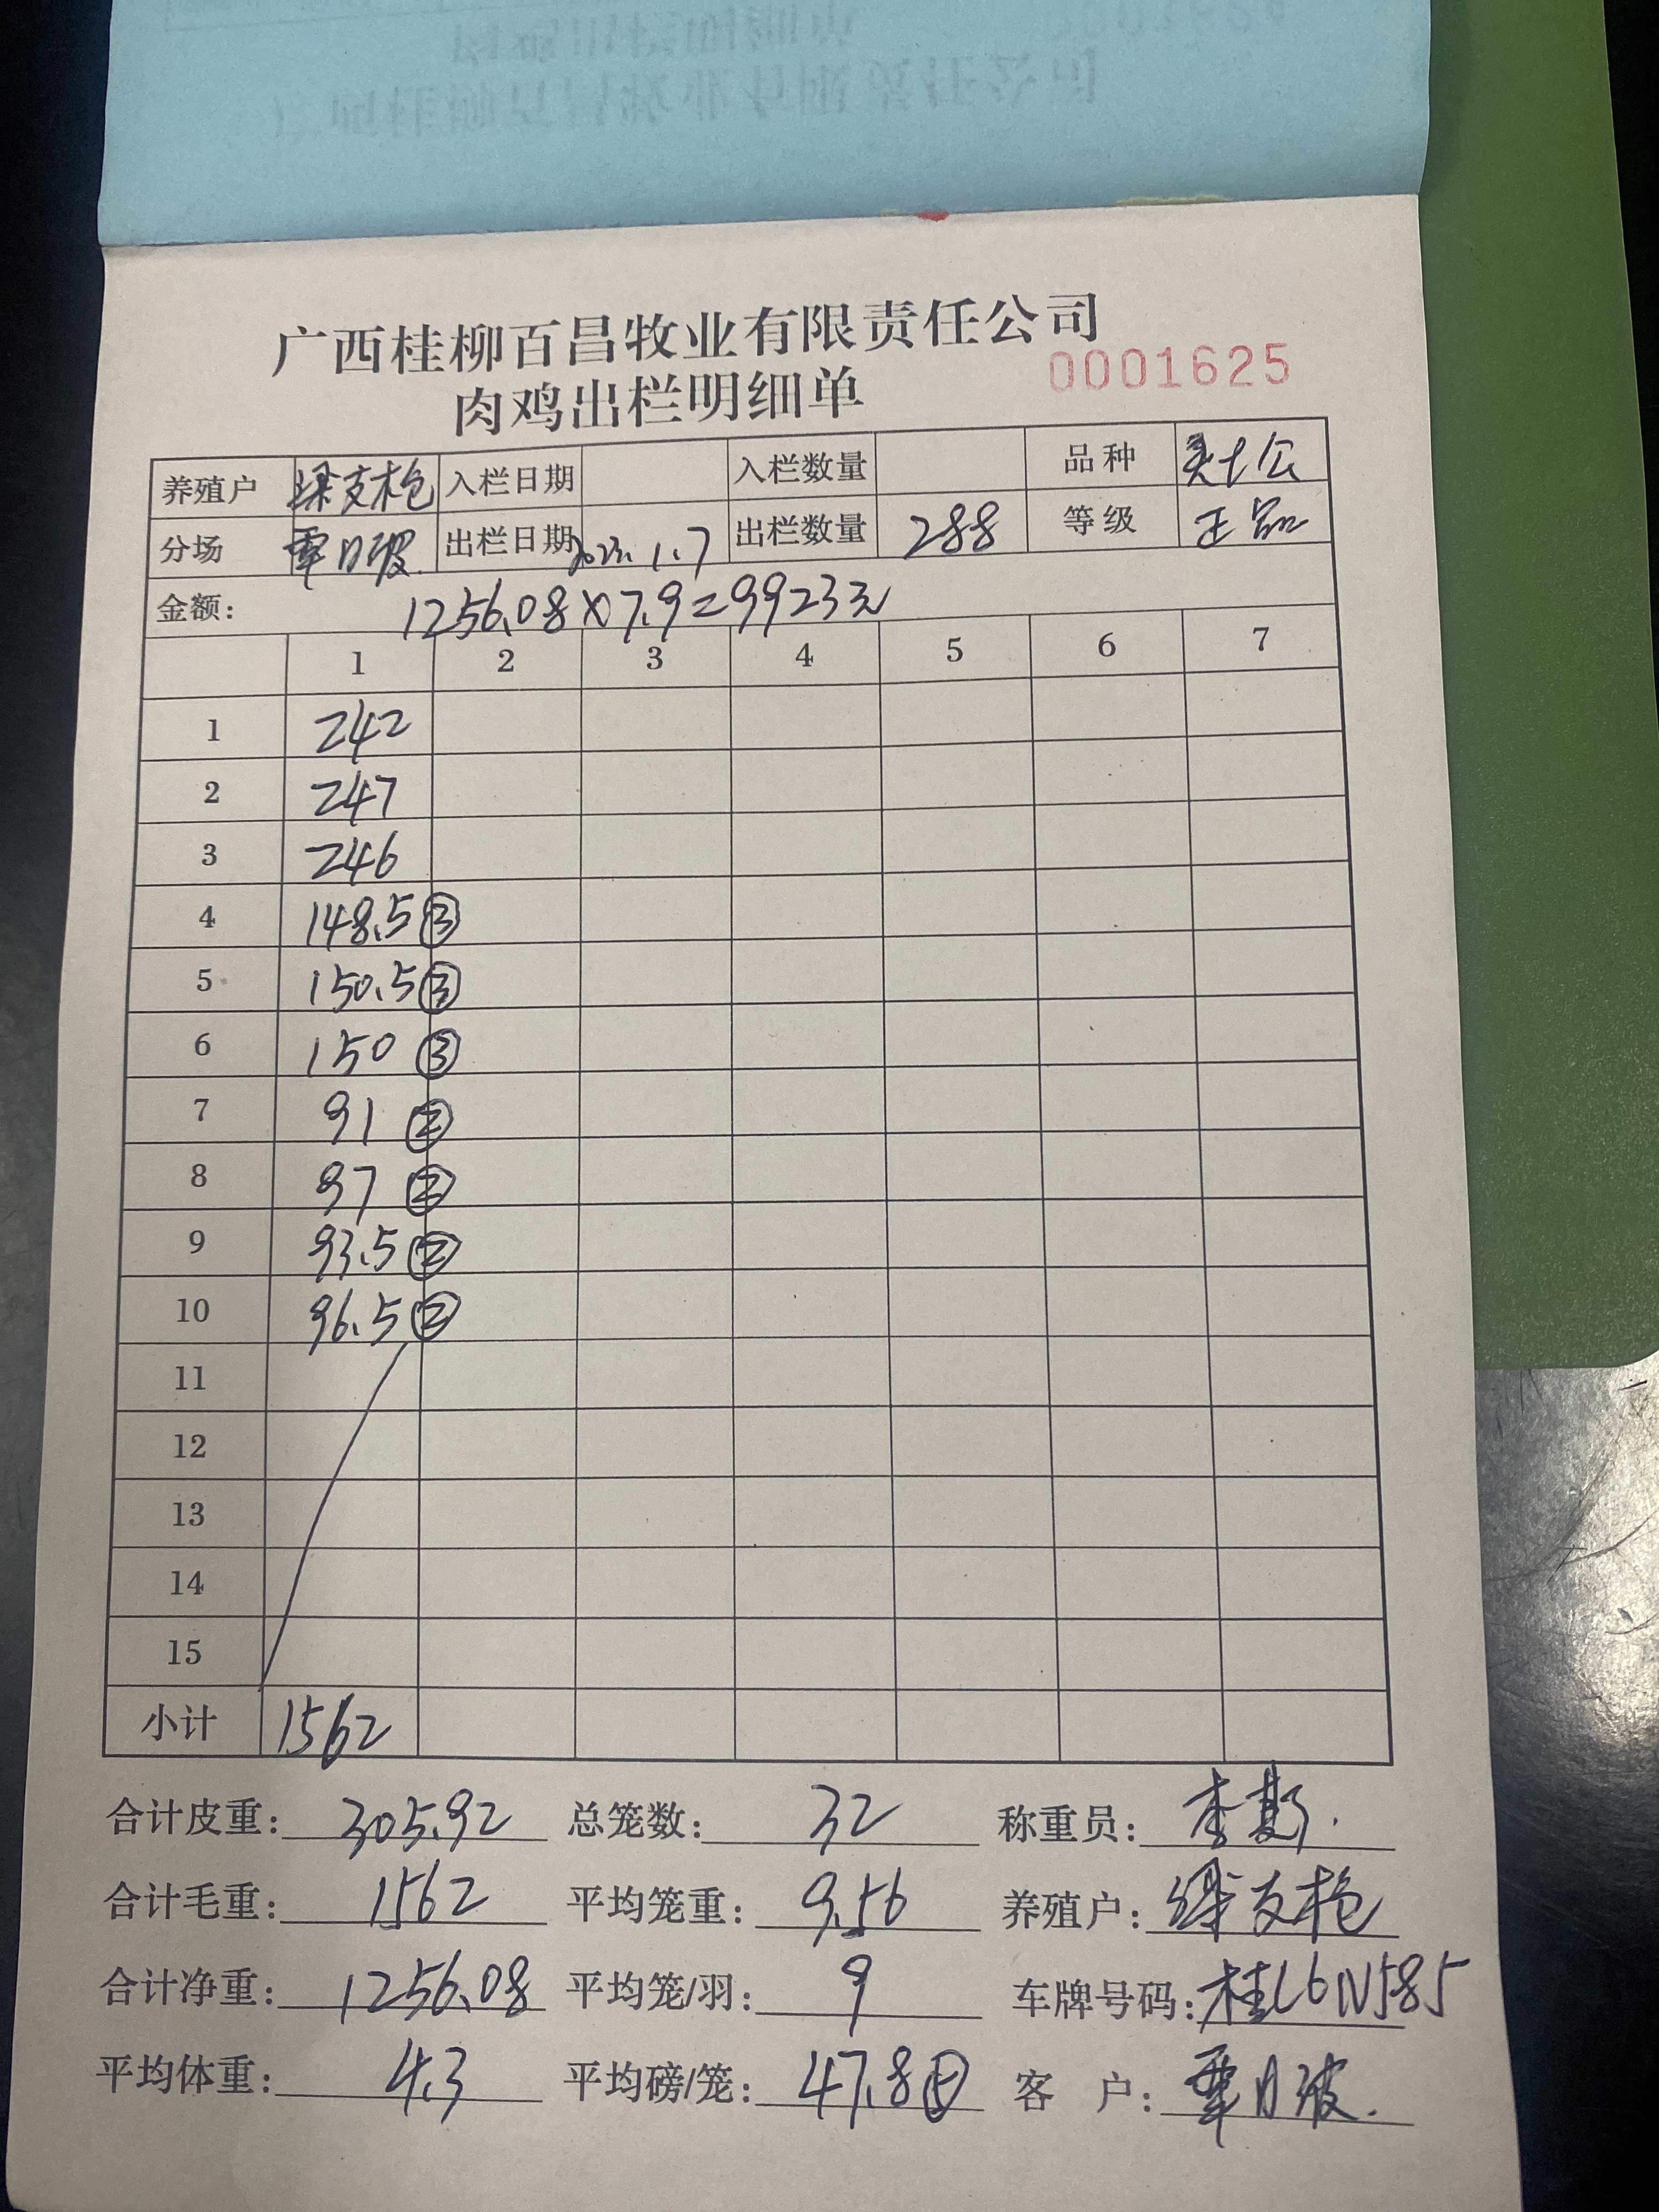 广西桂柳百昌牧业有限责任公司
肉鸡出栏明细单 0001625
养殖户 梁支枪 入栏日期 入栏数量 品种 公
分场 覃月波 出栏日期 2023.1.7 出栏数量 288 等级 正品
金额: 1256.08×7.9=9923元
1 2 3 4 5 6 7
1 242
2 247
3 246
4 148.5③
5 150.5③
6 150 ③
7 91 ②
8 97 ②
9 93.5②
10 96.5②
11
12
13
14
15
小计 1562
合计皮重: 305.92 总笼数: 32 称重员: 李
合计毛重: 1562 平均笼重: 9.56 养殖户: 梁支枪
合计净重: 1256.08 平均笼/羽: 9 车牌号码: 桂L6N585
平均体重: 4.3 平均磅/笼: 47.8 客 户: 覃月波.